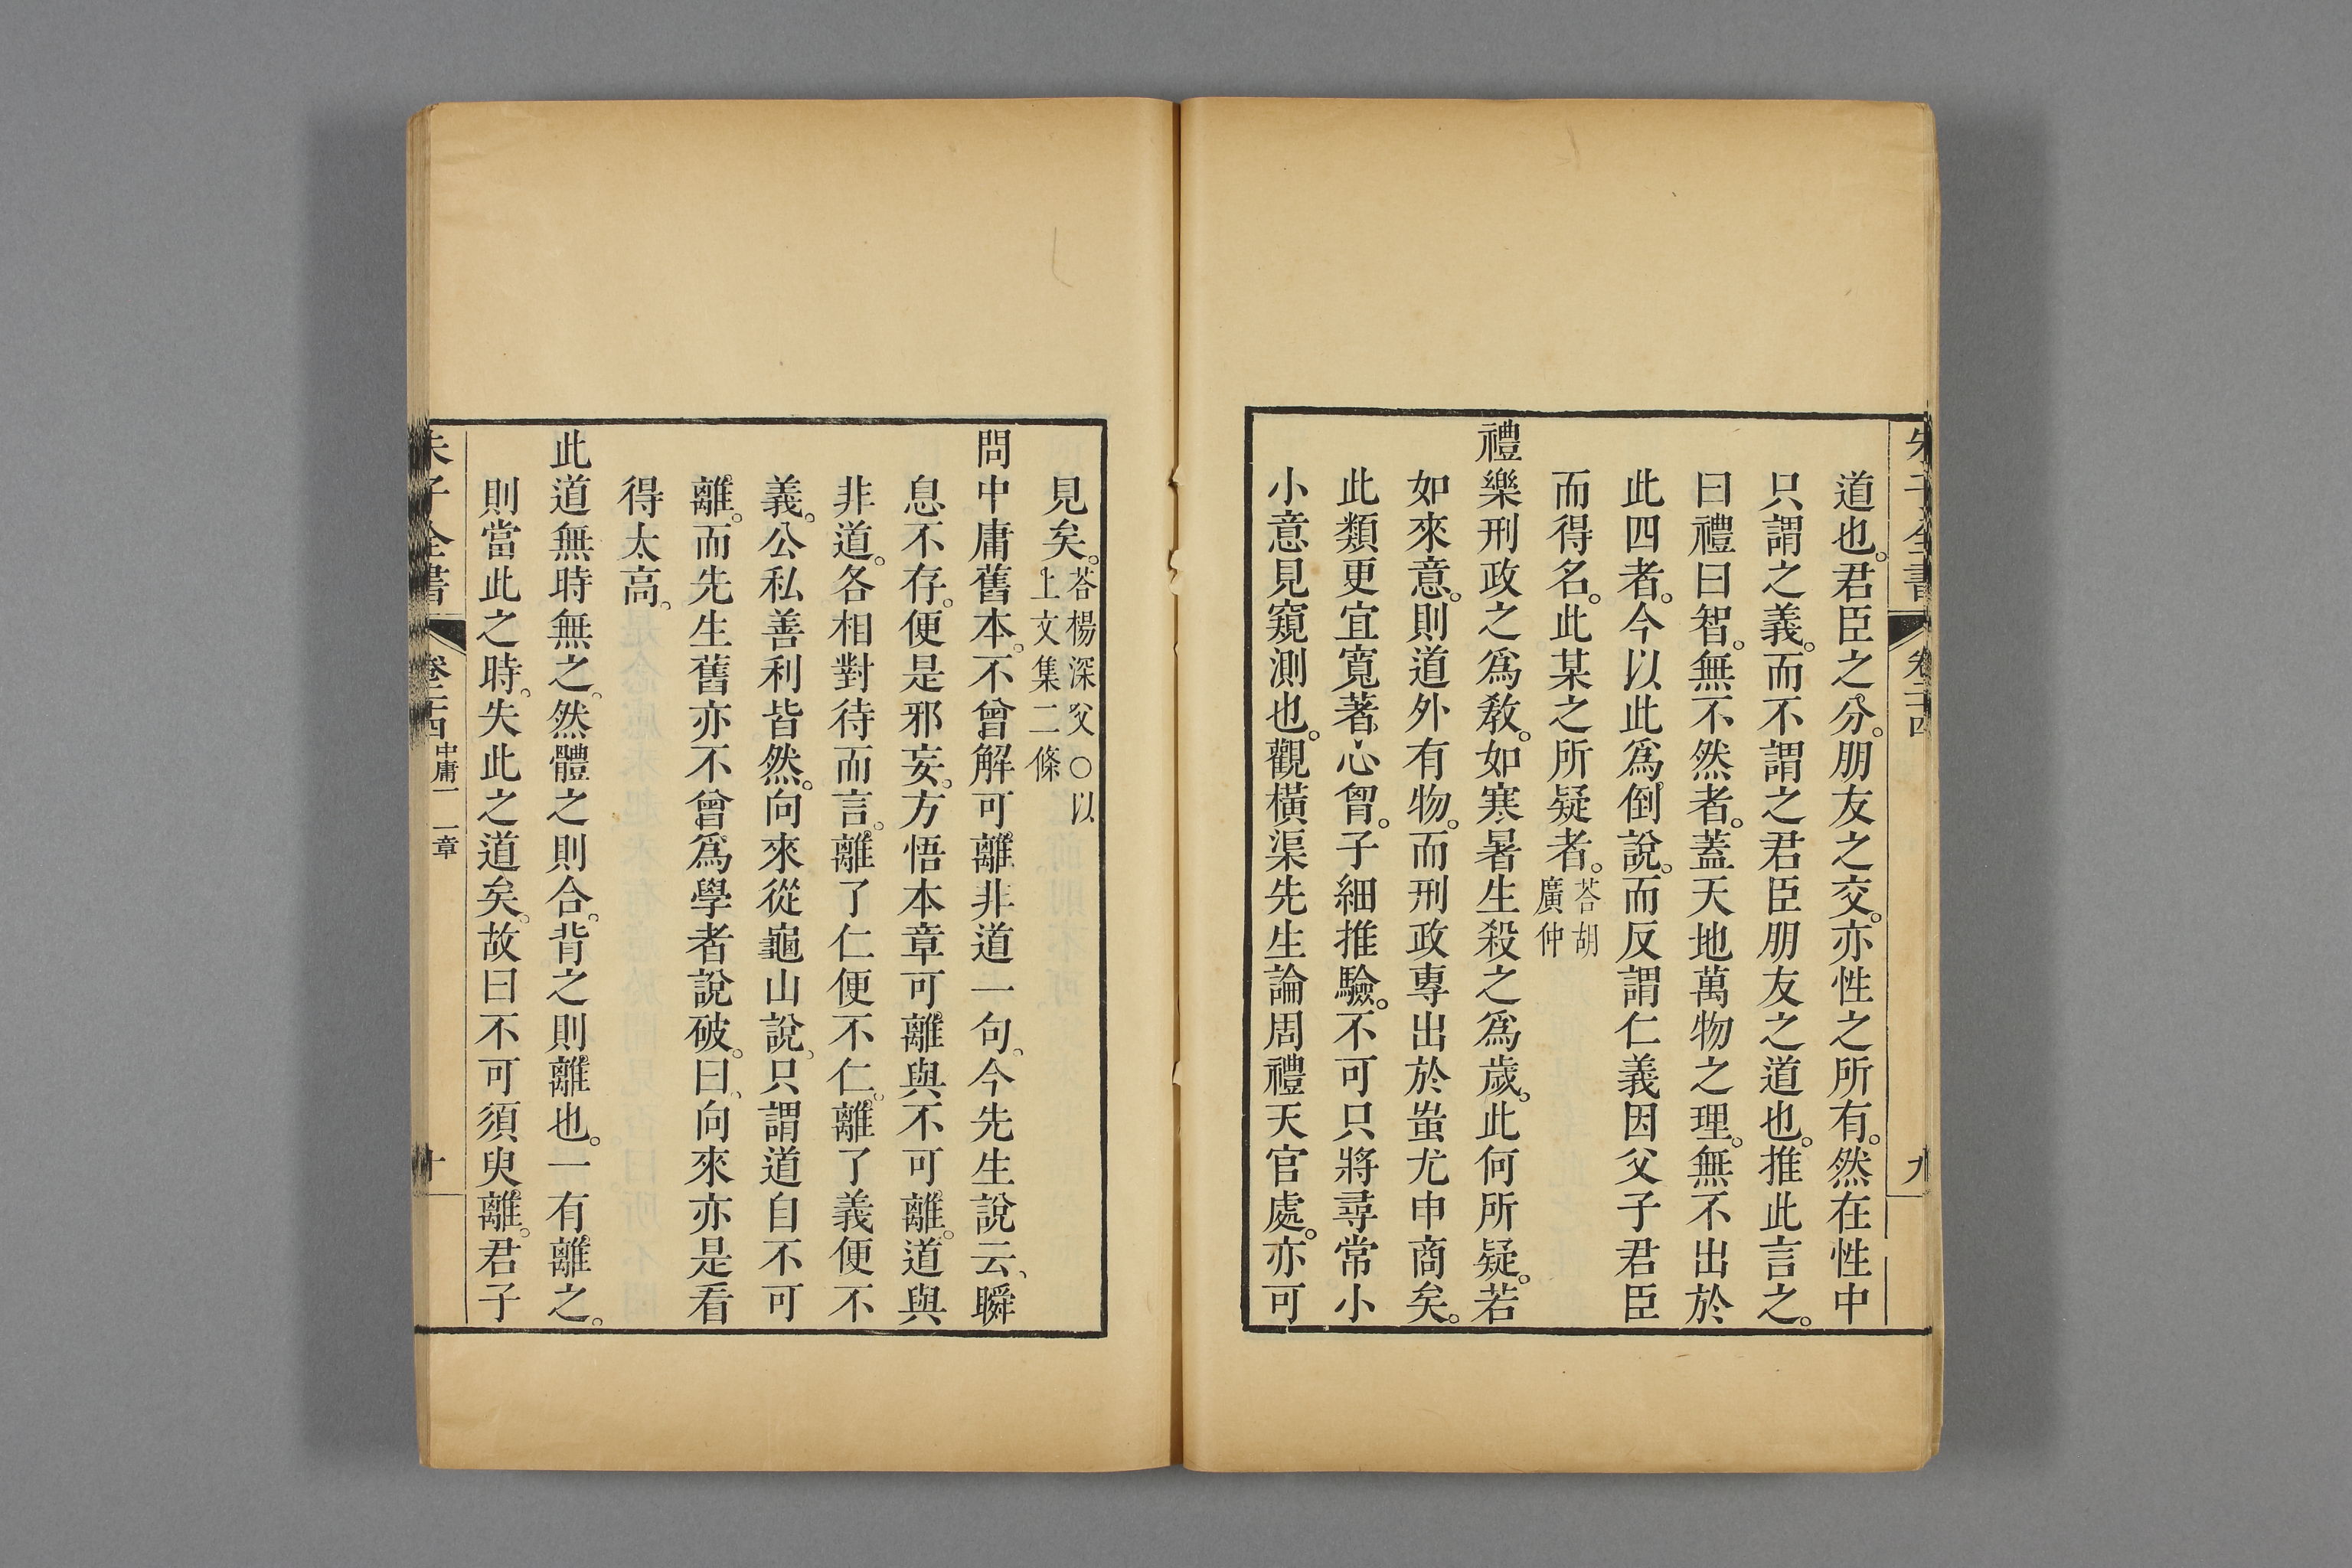 朱子全書 卷二十四 九
道也。君臣之分。朋友之交。亦性之所有。然在性中
只謂之義。而不謂之君臣朋友之道也。推此言之。
曰禮曰智。無不然者。蓋天地萬物之理。無不出於
此四者。今以此爲倒說。而反謂仁義因父子君臣
而得名。此某之所疑者。荅胡廣仲
禮樂刑政之爲敎。如寒暑生殺之爲歲。此何所疑。若
如來意。則道外有物。而刑政專出於蚩尤申商矣。
此類更宜寬著心胷。子細推驗。不可只將尋常小
小意見窺測也。觀橫渠先生論周禮天官處。亦可
見矣。荅楊深父○以上文集二條
問中庸舊本。不曾解可離非道一句。今先生說云、瞬
息不存。便是邪妄。方悟本章可離與不可離。道與
非道。各相對待而言。離了仁便不仁。離了義便不
義。公私善利皆然。向來從龜山說、只謂道自不可
離。而先生舊亦不曾爲學者說破。曰、向來亦是看
得太高。
此道無時無之。然體之則合。背之則離也。一有離之。
則當此之時。失此之道矣。故曰不可須臾離。君子
朱子全書 卷二十四 中庸一 一章 十